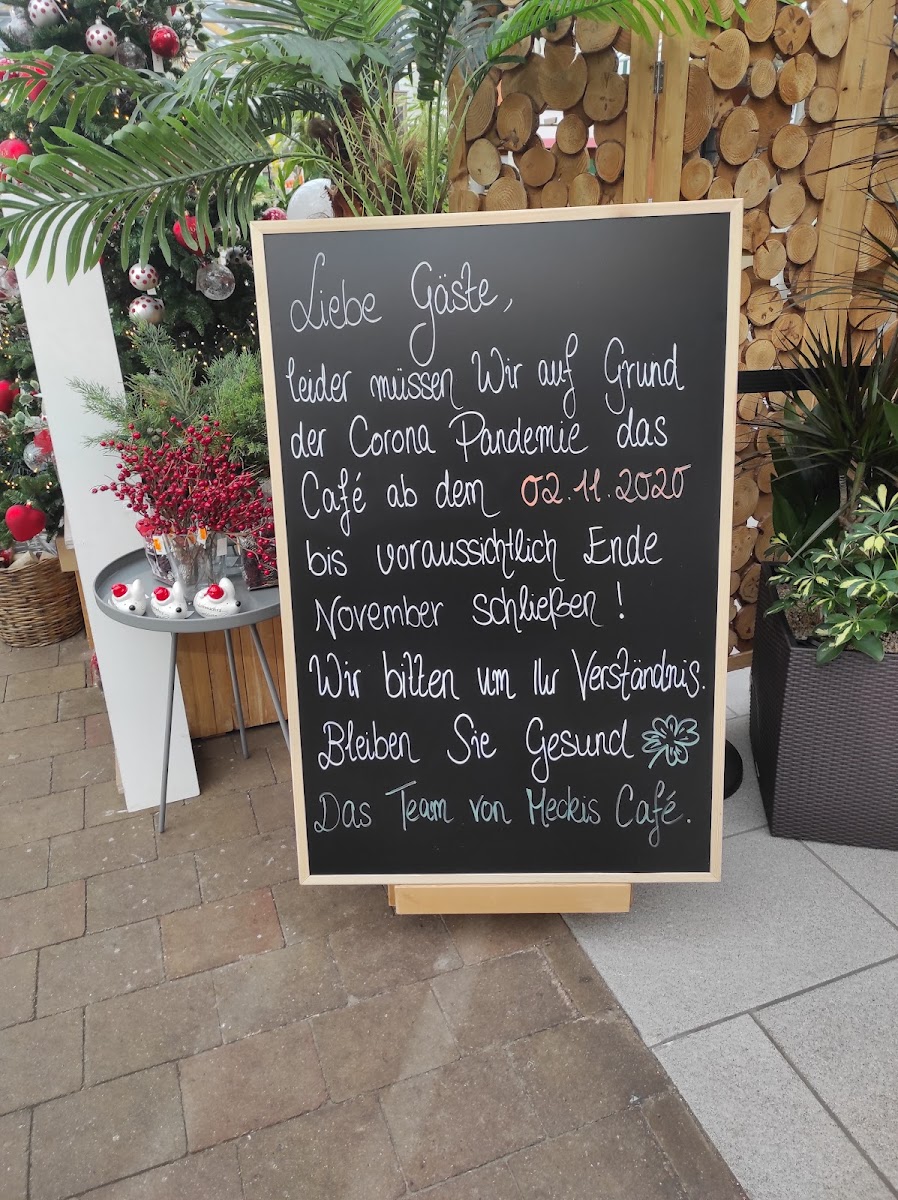 Liebe Gäste,
leider müssen Wir auf Grund
der Corona Pandemie das
Café ab dem 02.11.2020
bis voraussichtlich Ende
November schließen!
Wir bitten um Ihr Verständnis.
Bleiben Sie Gesund
Das Team von Meckis Café.